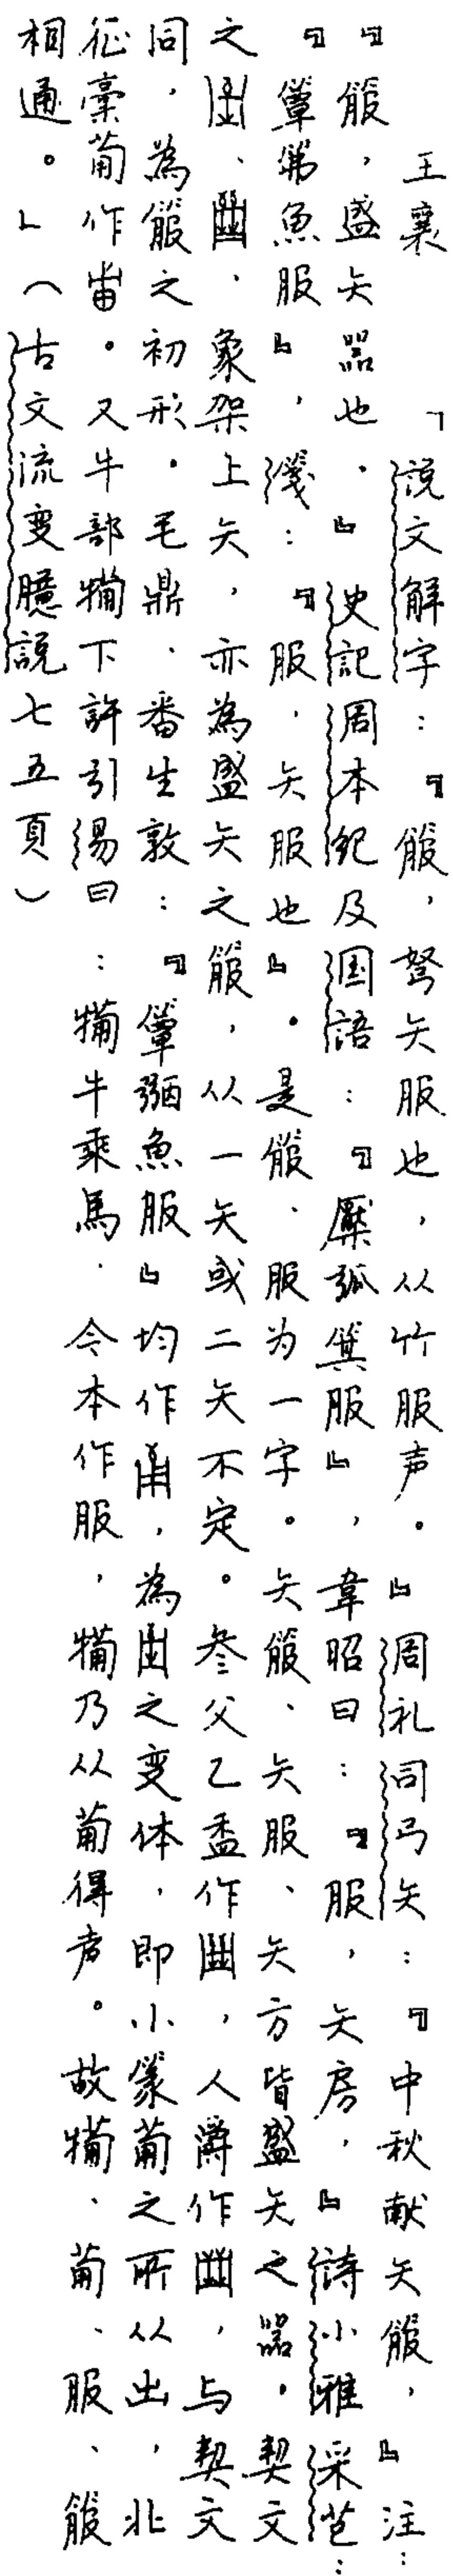 王襄　「說文解字：『箙，弩矢服也，从竹服声。』周礼司弓矢：『中秋献矢箙，』注：
『箙，盛矢器也。』史記周本紀及国語：『檿弧箕服』，韋昭曰：『服，矢房，』詩小雅采芑：
『簟笰魚服』，箋：『服，矢服也』。是箙、服为一字。矢箙、矢服、矢方皆盛矢之器。契文
之、，象架上矢，亦為盛矢之箙，从一矢或二矢不定。叄父乙盉作，人爵作，与契文
同，為箙之初形。毛鼎、番生敦：『簟弼魚服』均作，為之变体，即小篆葡之所从出，北
征稾葡作。又牛部犕下許引易曰：犕牛乘馬，今本作服，犕乃从葡得声。故犕、葡、服、箙
相通。」（古文流变臆說七五頁）